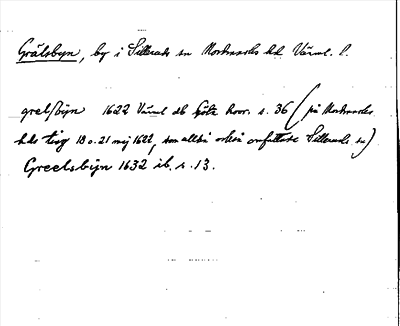 Grälsbyn, by i Sillerud sn Nordmarks hd Värml. l.
grelsbyn 1622 Värml db Göta hovr. s. 36 (på Nordmarks
hds ting 18 o. 21 maj 1622, som alltså också omfattade Silleruds sn)
Greelsbyn 1632 ib. s. 13.